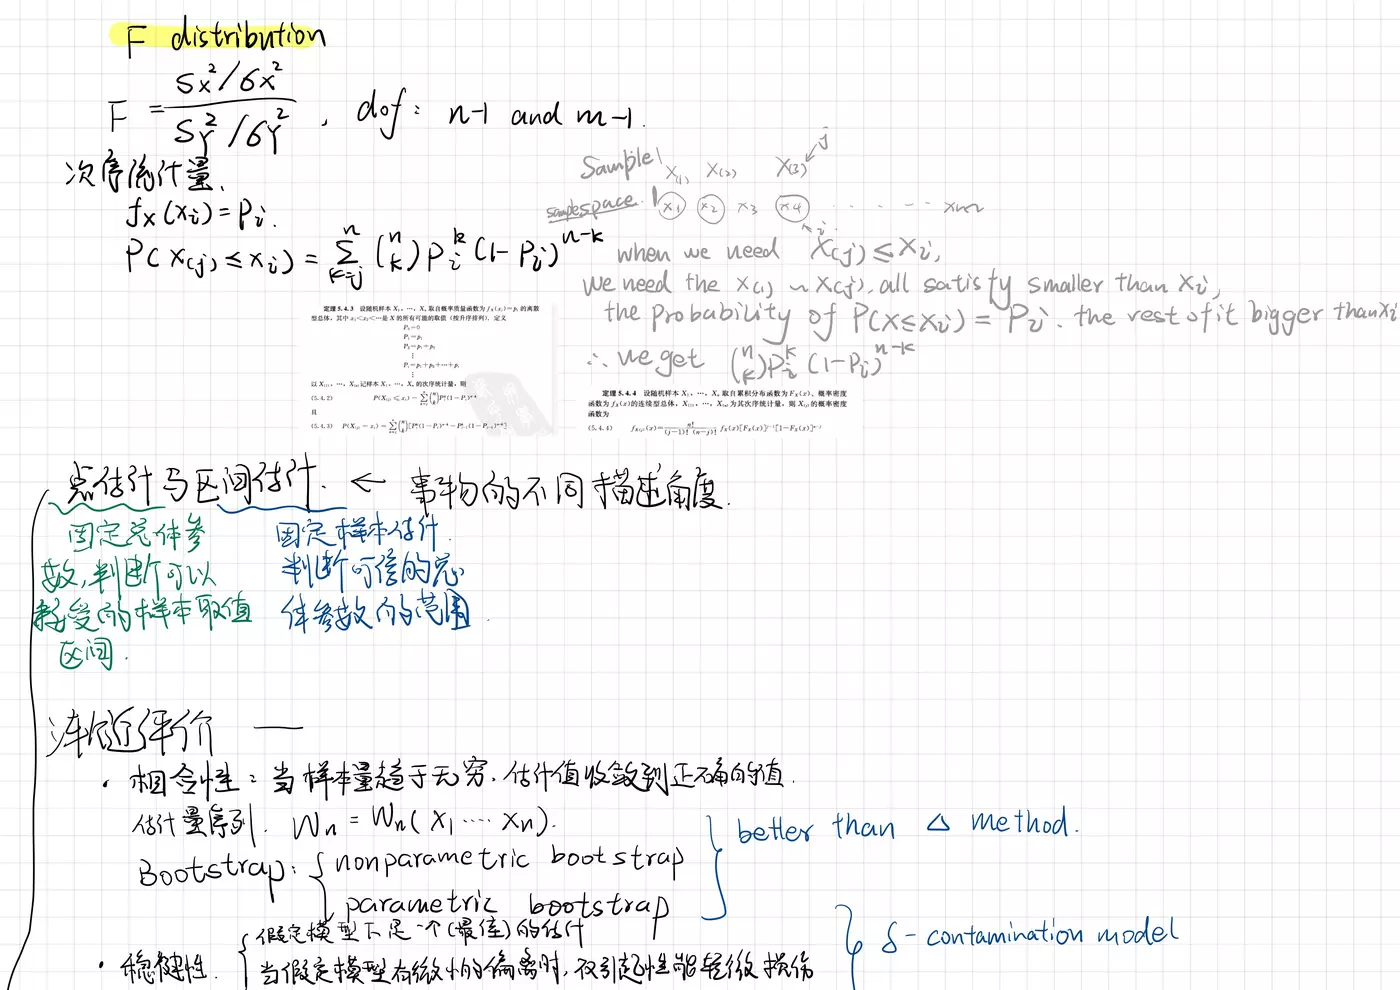 F distribution
F = (Sx²/σx²) / (SY²/σY²), dof: n-1 and m-1.
次序统计量.
fx(xi)=Pi.
P(X(j) ≤ xi) = Σ_{k=j}^{n} (n k) Pi^k (1-Pi)^{n-k}
Sample X(1) X(2) X(3) j
samplespace. x1 x2 x3 x4 ......
i
when we need X(j) ≤ Xi,
we need the X(1) ~ X(j), all satisfy smaller than Xi,
the probability of P(X≤Xi) = Pi. the rest of it bigger than Xi
∴ we get (n k) Pi^k (1-Pi)^{n-k}
定理 5.4.3 设随机样本 X₁,⋯,Xₙ 取自概率质量函数为 fX(xi)=pi 的离散
型总体,其中 x₁<x₂<⋯是 X 的所有可能的取值(按升序排列).定义
P₀=0
P₁=p₁
P₂=p₁+p₂
⋮
Pi=p₁+p₂+⋯+pi
⋮
以 X(1),⋯,X(n)记样本 X₁,⋯,Xₙ 的次序统计量,则
(5.4.2) P(X(j)≤xi)=Σ_{k=j}^{n} (n k) Pi^k(1-Pi)^{n-k}
且
(5.4.3) P(X(j)=xi)=Σ_{k=j}^{n} (n k)[Pi^k(1-Pi)^{n-k}-P_{i-1}^k(1-P_{i-1})^{n-k}]
定理 5.4.4 设随机样本 X₁,⋯,Xₙ 取自累积分布函数为 FX(x)、概率密度
函数为 fX(x)的连续型总体,X(1),⋯,X(n)为其次序统计量,则 X(j)的概率密度
函数为
(5.4.4) fX(j)(x)=n!/((j-1)!(n-j)!) fX(x)[FX(x)]^{j-1}[1-FX(x)]^{n-j}
点估计与区间估计. ← 事物的不同描述角度.
固定总体参
数,判断可以
接受的样本取值
区间.
固定样本估计.
判断可信的总
体参数的范围.
渐近评价 —
· 相合性: 当样本量趋于无穷.估计值收敛到正确的值.
估计量序列. Wn = Wn(X1 ···· Xn).
Bootstrap: { nonparametric bootstrap
parametric bootstrap
} better than Δ method.
· 稳健性. { 假定模型下是一个(最佳)的估计
当假定模型有微小的偏离时,仅引起性能轻微损伤
} δ-contamination model